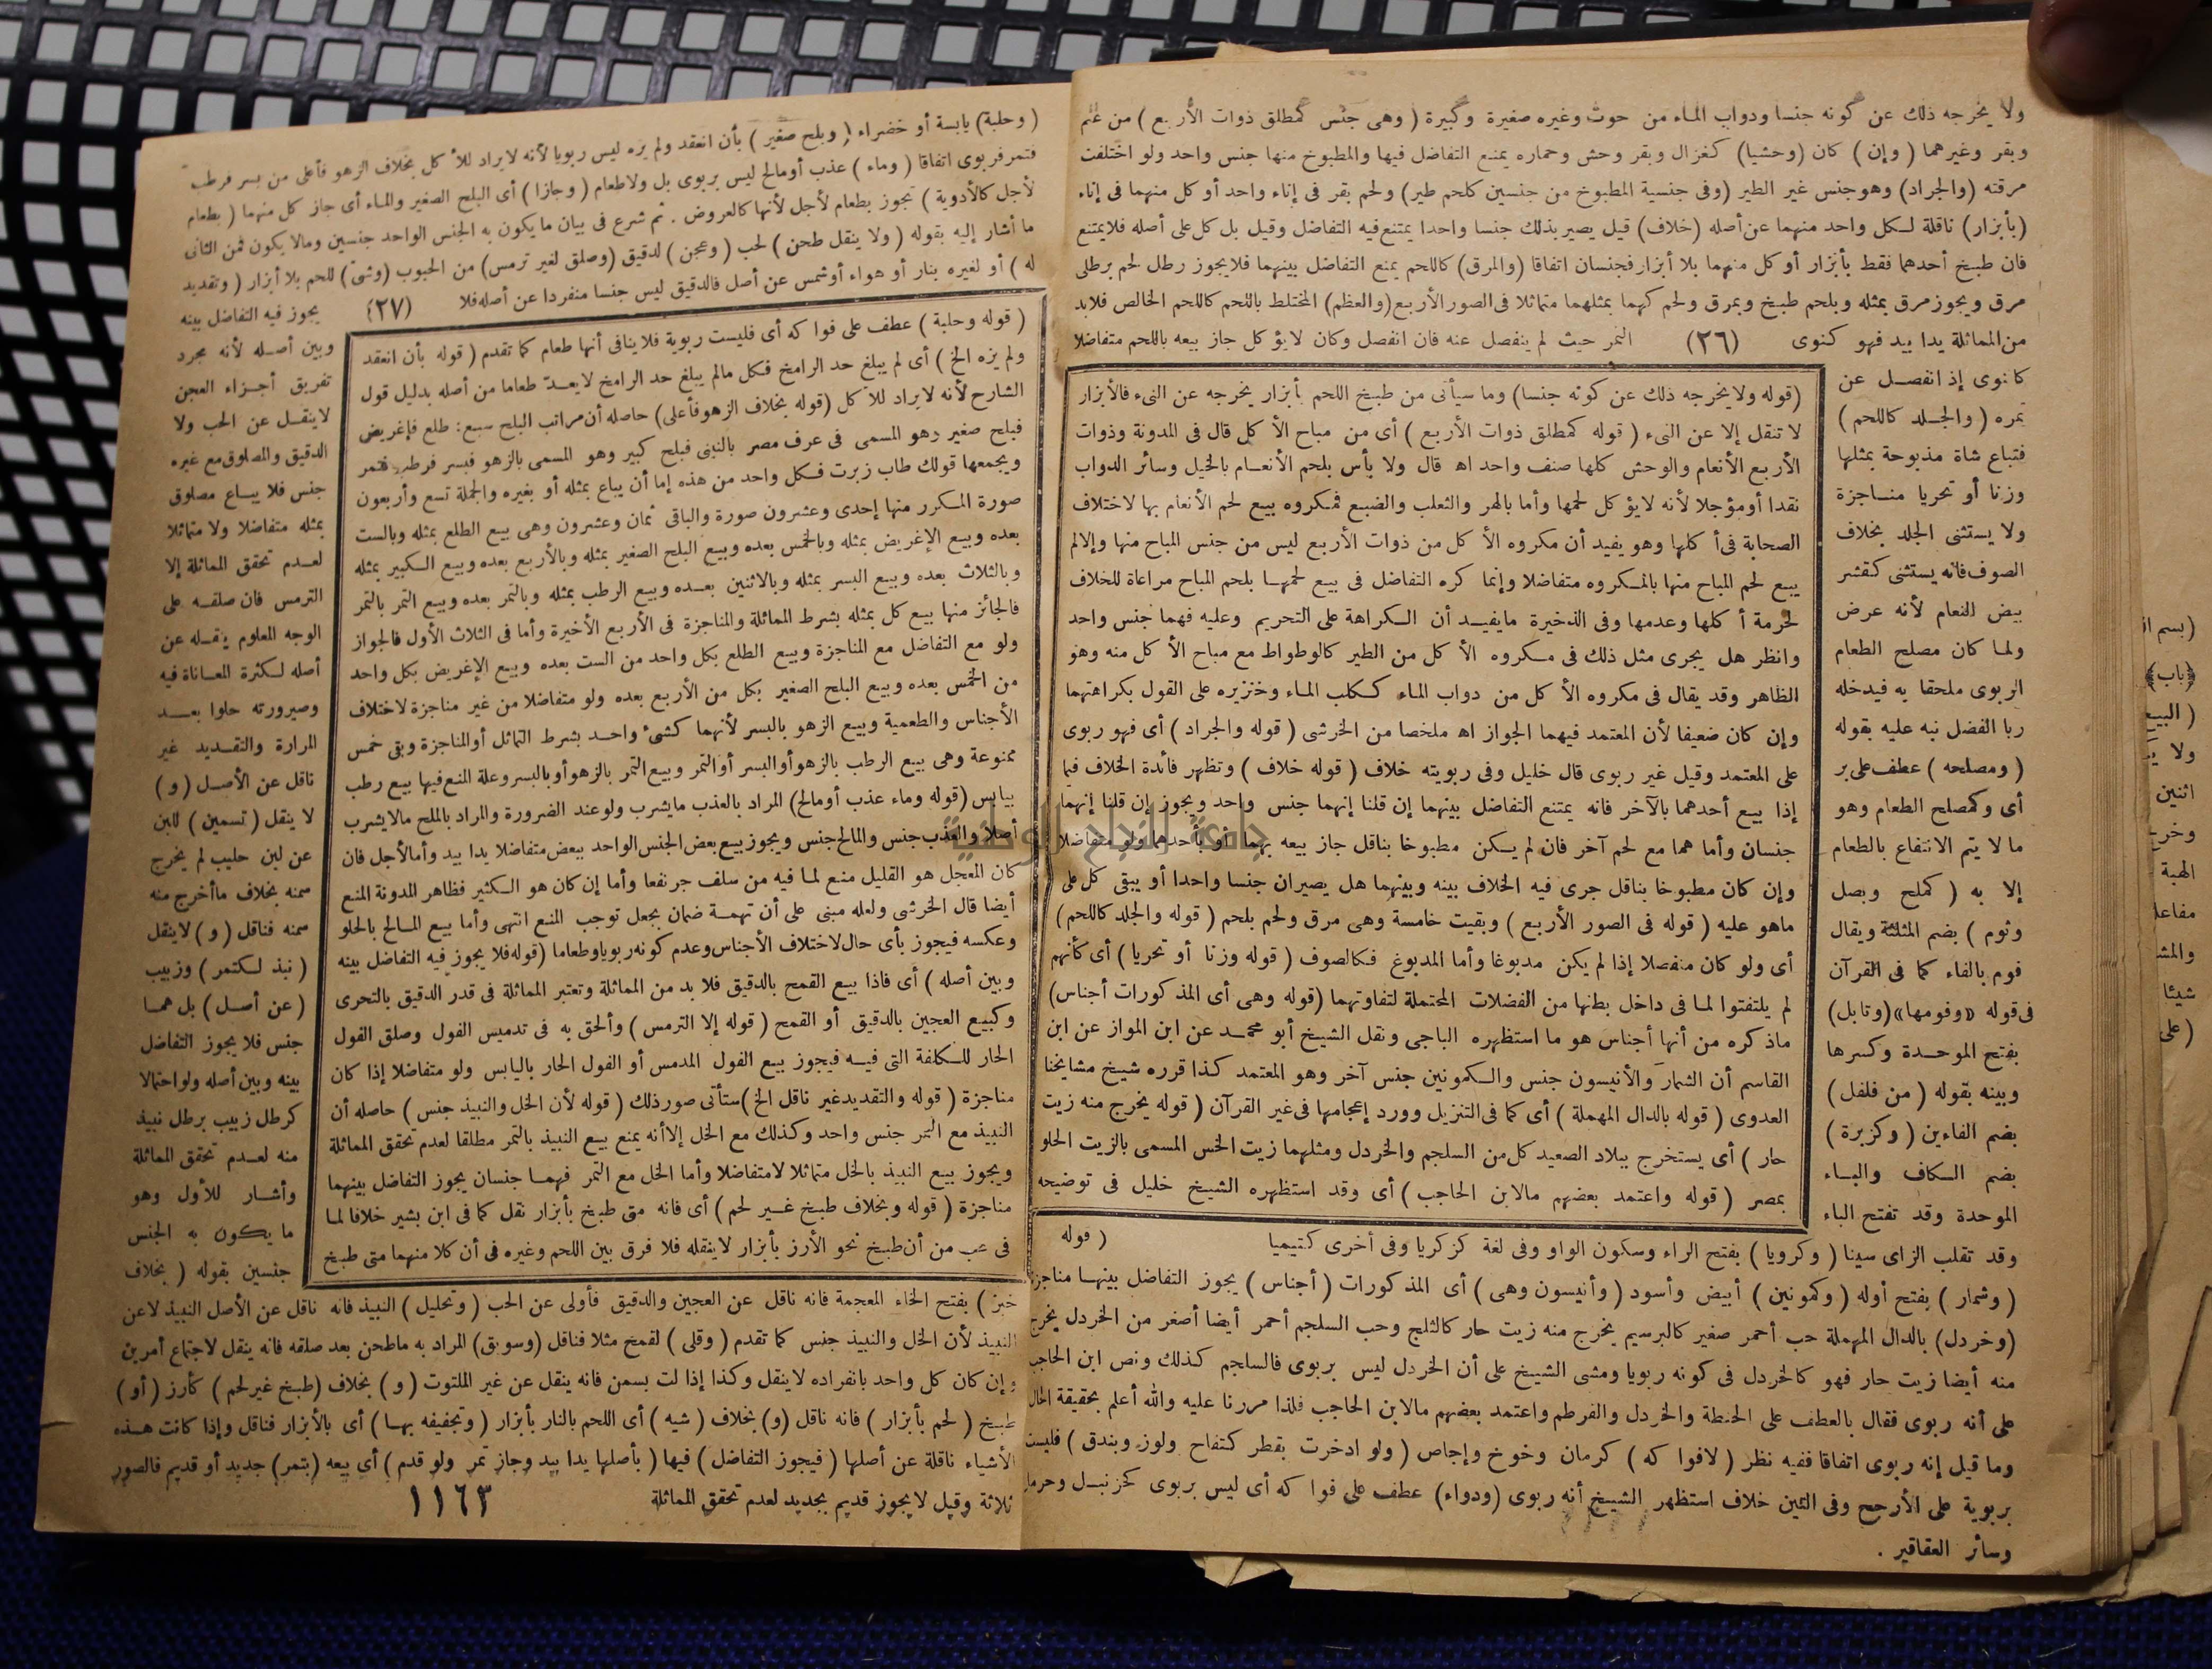 ولا يخرجه ذلك عن كونه جنسا ودواب الماء من حوت وغيره صغيرة وكبيرة ( وهى جنس كمطلق ذوات الأربع ) من غنم
وبقر وغيرهما ( وإن ) كان (وحشيا) كغزال وبقر وحش وحماره يمنع التفاضل فيها والمطبوخ منها جنس واحد ولو اختلفت
مرقته (والجراد) وهو جنس غير الطير (وفى جنسية المطبوخ من جنسين كلحم طير) ولحم بقر فى إناء واحد أو كل منهما فى إناء
(بأبزار) ناقلة لكل واحد منهما عن أصله (خلاف) قيل يصير بذلك جنسا واحدا يمتنع فيه التفاضل وقيل بل كل على أصله فلا يمتنع
فان طبخ أحدهما فقط بأبزار أو كل منهما بلا أبزار فجنسان اتفاقا (والمرق) كاللحم يمنع التفاضل بينهما فلا يجوز رطل لحم برطلى
مرق ويجوز مرق بمثله وبلحم طبخ وبمرق ولحم كهما بمثلهما متماثلا فى الصور الأربع (والعظم) المختلط باللحم كاللحم الخالص فلا بد
من المماثلة يدا بيد فهو كنوى (٢٦) التمر حيث لم ينفصل عنه فان انفصل وكان لا يؤكل جاز بيعه باللحم متفاضلا
كانوى إذ انفصل عن
تمره ( والجلد كاللحم )
فتباع شاة مذبوحة بمثلها
وزنا أو تحريا مناجزة
ولا يستثنى الجلد بخلاف
الصوف فانه يستثنى كقشر
بيض النعام لأنه عرض
ولما كان مصلح الطعام
الربوى ملحقا به فيدخله
ربا الفضل نبه عليه بقوله
( ومصلحه ) عطف على بر
أى وكمصلح الطعام وهو
ما لا يتم الانتفاع بالطعام
إلا به ( كملح وبصل
وثوم ) بضم المثلثة ويقال
فوم بالفاء كما فى القرآن
فى قوله «وفومها» (وتابل)
بفتح الموحدة وكسرها
وبينه بقوله ( من فلفل )
بضم الفاءين ( وكزبرة )
بضم الكاف والباء
الموحدة وقد تفتح الباء
(قوله ولا يخرجه ذلك عن كونه جنسا) وما سيأتى من طبخ اللحم بأبزار يخرجه عن النىء فالأبزار
لا تنقل إلا عن النىء ( قوله كمطلق ذوات الأربع ) أى من مباح الأكل قال فى المدونة وذوات
الأربع الأنعام والوحش كلها صنف واحد اه قال ولا بأس بلحم الأنعام بالخيل وسائر الدواب
نقدا أو مؤجلا لأنه لا يؤكل لحمها وأما بالهر والثعلب والضبع فمكروه بيع لحم الأنعام بها لاختلاف
الصحابة فى أكلها وهو يفيد أن مكروه الأكل من ذوات الأربع ليس من جنس المباح منها وإلا لم
يبع لحم المباح منها بالمكروه متفاضلا وإنما كره التفاضل فى بيع لحمها بلحم المباح مراعاة للخلاف
لحرمة أكلها وعدمها وفى الذخيرة ما يفيد أن الكراهة على التحريم وعليه فهما جنس واحد
وانظر هل يجرى مثل ذلك فى مكروه الأكل من الطير كالوطواط مع مباح الأكل منه وهو
الظاهر وقد يقال فى مكروه الأكل من دواب الماء ككلب الماء وخنزيره على القول بكراهتهما
وإن كان ضعيفا لأن المعتمد فيهما الجواز اه ملخصا من الخرشى ( قوله والجراد ) أى فهو ربوى
على المعتمد وقيل غير ربوى قال خليل وفى ربويته خلاف ( قوله خلاف ) وتظهر فائدة الخلاف فيما
إذا بيع أحدهما بالآخر فانه يمتنع التفاضل بينهما إن قلنا إنهما جنس واحد ويجوز إن قلنا إنهما
جنسان وأما هما مع لحم آخر فان لم يكن مطبوخا بناقل جاز بيعه بهما أو بأحدهما ولو متفاضلا
وإن كان مطبوخا بناقل جرى فيه الخلاف بينه وبينهما هل يصيران جنسا واحدا أو يبقى كل على
ماهو عليه ( قوله فى الصور الأربع ) وبقيت خامسة وهى مرق ولحم بلحم ( قوله والجلد كاللحم )
أى ولو كان منفصلا إذا لم يكن مدبوغا وأما المدبوغ فكالصوف ( قوله وزنا أو تحريا ) أى كأنهم
لم يلتفتوا لما فى داخل بطنها من الفضلات المحتملة لتفاوتهما (قوله وهى أى المذكورات أجناس)
ماذكره من أنها أجناس هو ما استظهره الباجى ونقل الشيخ أبو محمد عن ابن المواز عن ابن
القاسم أن الشمار والأنيسون جنس والكمونين جنس آخر وهو المعتمد كذا قرره شيخ مشايخنا
العدوى ( قوله بالدال المهملة ) أى كما فى التنزيل وورد إعجامها فى غير القرآن ( قوله يخرج منه زيت
حار ) أى يستخرج ببلاد الصعيد كل من السلجم والخردل ومثلهما زيت الخس المسمى بالزيت الحلو
بمصر ( قوله واعتمد بعضهم مالابن الحاجب ) أى وقد استظهره الشيخ خليل فى توضيحه
( قوله
وقد تقلب الزاى سينا ( وكرويا ) بفتح الراء وسكون الواو وفى لغة كزكريا وفى أخرى كتيميا
( وشمار ) بفتح أوله ( وكمونين ) أبيض وأسود ( وأنيسون وهى ) أى المذكورات ( أجناس ) يجوز التفاضل بينها مناجزة
(وخردل) بالدال المهملة حب أحمر صغير كالبرسيم يخرج منه زيت حار كالثلج وحب السلجم أحمر أيضا أصغر من الخردل يخرج
منه أيضا زيت حار فهو كالخردل فى كونه ربويا ومشى الشيخ على أن الخردل ليس بربوى فالسلجم كذلك ونص ابن الحاجب
على أنه ربوى فقال بالعطف على الحنطة والخردل والقرطم واعتمد بعضهم مالابن الحاجب فلذا مررنا عليه والله أعلم بحقيقة الحال
وما قيل إنه ربوى اتفاقا ففيه نظر ( لا فواكه ) كرمان وخوخ وإجاص ( ولو ادخرت بقطر كتفاح ولوز وبندق ) فليست
بربوية على الأرجح وفى التين خلاف استظهر الشيخ أنه ربوى (ودواء) عطف على فواكه أى ليس بربوى كخزنبل وحرمل
وسائر العقاقير .
( وحلبة) يابسة أو خضراء ( وبلح صغير ) بأن انعقد ولم يزه ليس ربويا لأنه لا يراد للأكل بخلاف الزهو فأعلى من بسر فرطب
فتمر فربوى اتفاقا ( وماء ) عذب أو مالح ليس بربوى بل ولا طعام ( وجازا ) أى البلح الصغير والماء أى جاز كل منهما ( بطعام
لأجل كالأدوية ) تجوز بطعام لأجل لأنها كالعروض . ثم شرع فى بيان ما يكون به الجنس الواحد جنسين ومالا يكون فمن الثانى
ما أشار إليه بقوله ( ولا ينقل طحن ) لحب ( وعجن ) لدقيق (وصلق لغير ترمس) من الحبوب (وشىّ) للحم بلا أبزار ( وتقديد
له ) أو لغيره بنار أو هواء أو شمس عن أصل فالدقيق ليس جنسا منفردا عن أصله فلا (٢٧)
يجوز فيه التفاضل بينه
وبين أصله لأنه مجرد
تفريق أجزاء العجن
لا ينقل عن الحب ولا
الدقيق والمصلوق مع غيره
جنس فلا يباع مصلوق
بمثله متفاضلا ولا متماثلا
لعدم تحقق المماثلة إلا
الترمس فان صلقه على
الوجه المعلوم ينقله عن
أصله لكثرة المعاناة فيه
وصيرورته حلوا بعد
المرارة والتقديد غير
ناقل عن الأصل ( و )
لا ينقل ( تسمين ) للبن
عن لبن حليب لم يخرج
سمنه بخلاف ما أخرج منه
سمنه فناقل ( و ) لا ينقل
( نبذ لكتمر ) وزبيب
( عن أصل ) بل هما
جنس فلا يجوز التفاضل
بينه وبين أصله ولو احتمالا
كرطل زبيب برطل نبيذ
منه لعدم تحقق المماثلة
وأشار للأول وهو
ما يكون به الجنس
جنسين بقوله ( بخلاف
( قوله وحلبة ) عطف على فواكه أى فليست ربوية فلا ينافى أنها طعام كما تقدم ( قوله بأن انعقد
ولم يزه الخ ) أى لم يبلغ حد الرامخ فكل مالم يبلغ حد الرامخ لا يعدّ طعاما من أصله بدليل قول
الشارح لأنه لا يراد للأكل (قوله بخلاف الزهو فأعلى) حاصله أن مراتب البلح سبع: طلع فإغريض
فبلح صغير وهو المسمى فى عرف مصر بالنينى فبلح كبير وهو المسمى بالزهو فبسر فرطب فتمر
ويجمعها قولك طاب زبرت فكل واحد من هذه إما أن يباع بمثله أو بغيره والجملة تسع وأربعون
صورة المكرر منها إحدى وعشرون صورة والباقى ثمان وعشرون وهى بيع الطلع بمثله وبالست
بعده وبيع الإغريض بمثله وبالخمس بعده وبيع البلح الصغير بمثله وبالأربع بعده وبيع الكبير بمثله
وبالثلاث بعده وبيع البسر بمثله وبالاثنين بعده وبيع الرطب بمثله وبالتمر بعده وبيع التمر بالتمر
فالجائز منها بيع كل بمثله بشرط المماثلة والمناجزة فى الأربع الأخيرة وأما فى الثلاث الأول فالجواز
ولو مع التفاضل مع المناجزة وبيع الطلع بكل واحد من الست بعده وبيع الإغريض بكل واحد
من الخمس بعده وبيع البلح الصغير بكل من الأربع بعده ولو متفاضلا من غير مناجزة لاختلاف
الأجناس والطعمية وبيع الزهو بالبسر لأنهما كشىء واحد بشرط التماثل أو المناجزة وبقى خمس
ممنوعة وهى بيع الرطب بالزهو أو البسر أو التمر وبيع التمر بالزهو أو بالبسر وعلة المنع فيها بيع رطب
بيابس (قوله وماء عذب أو مالح) المراد بالعذب ما يشرب ولو عند الضرورة والمراد بالملح مالا يشرب
أصلا والعذب جنس والمالح جنس ويجوز بيع بعض الجنس الواحد ببعض متفاضلا يدا بيد وأما لأجل فان
كان المعجل هو القليل منع لما فيه من سلف جر نفعا وأما إن كان هو الكثير فظاهر المدونة المنع
أيضا قال الخرشى ولعله مبنى على أن تهمة ضمان بجعل توجب المنع انتهى وأما بيع المالح بالحلو
وعكسه فيجوز بأى حال لاختلاف الأجناس وعدم كونه ربويا وطعاما (قوله فلا يجوز فيه التفاضل بينه
وبين أصله ) أى فاذا بيع القمح بالدقيق فلا بد من المماثلة وتعتبر المماثلة فى قدر الدقيق بالتحرى
وكبيع العجين بالدقيق أو القمح ( قوله إلا الترمس ) وألحق به فى تدميس الفول وصلق الفول
الحار للكلفة التى فيه فيجوز بيع الفول المدمس أو الفول الحار باليابس ولو متفاضلا إذا كان
مناجزة ( قوله والتقديد غير ناقل الخ ) ستأتى صور ذلك ( قوله لأن الخل والنبيذ جنس ) حاصله أن
النبيذ مع التمر جنس واحد وكذلك مع الخل إلا أنه يمنع بيع النبيذ بالتمر مطلقا لعدم تحقق المماثلة
ويجوز بيع النبيذ بالخل متماثلا لا متفاضلا وأما الخل مع التمر فهما جنسان يجوز التفاضل بينهما
مناجزة ( قوله وبخلاف طبخ غير لحم ) أى فانه متى طبخ بأبزار نقل كما فى ابن بشير خلافا لما
فى عب من أن طبخ نحو الأرز بأبزار لا ينقله فلا فرق بين اللحم وغيره فى أن كلا منهما متى طبخ
خبز ) بفتح الخاء المعجمة فانه ناقل عن العجين والدقيق فأولى عن الحب ( وتخليل ) النبيذ فانه ناقل عن الأصل النبيذ لا عن
النبيذ لأن الخل والنبيذ جنس كما تقدم ( وقلى ) لقمح مثلا فناقل (وسويق) المراد به ما طحن بعد صلقه فانه ينقل لاجتماع أمرين
وإن كان كل واحد بانفراده لا ينقل وكذا إذا لت بسمن فانه ينقل عن غير الملتوت ( و ) بخلاف (طبخ غير لحم ) كأرز ( أو )
طبخ ( لحم بأبزار ) فانه ناقل (و) بخلاف ( شيه ) أى اللحم بالنار بأبزار ( وتجفيفه بها ) أى بالأبزار فناقل وإذا كانت هذه
الأشياء ناقلة عن أصلها ( فيجوز التفاضل ) فيها ( بأصلها يدا بيد وجاز تمر ولو قدم ) أى بيعه (بتمر) جديد أو قديم فالصور
ثلاثة وقيل لا يجوز قديم بجديد لعدم تحقق المماثلة
١١٦٣
(باب)
( البيع
اثنين
الهبة
شيئا
( على
جامعة النجاح الوطنية